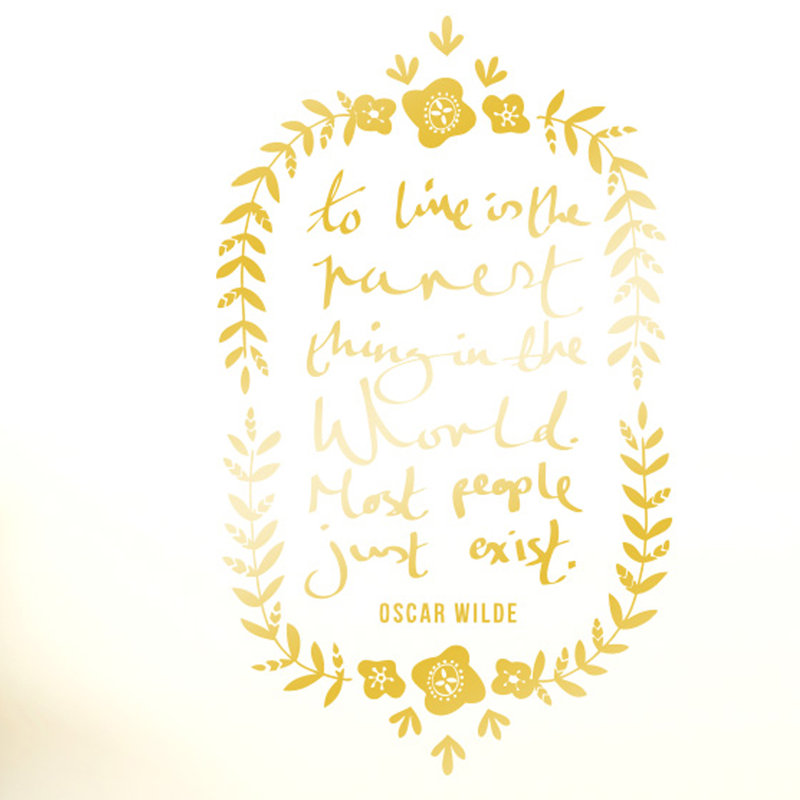 to live is the
rarest
thing in the
World.
Most people
just exist.
OSCAR WILDE